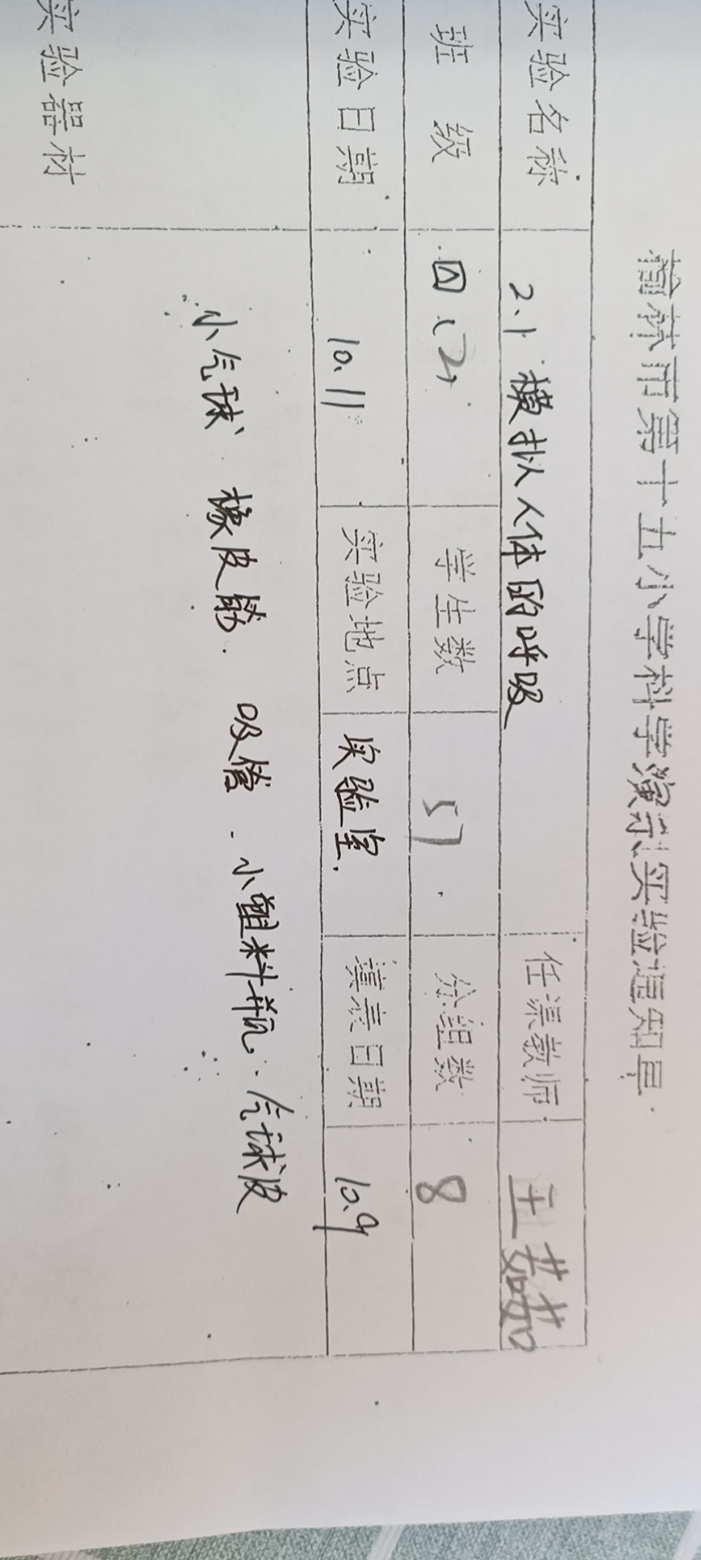 榆林市第十五小学科学演示实验通知单
实验名称 2.1 模拟人体的呼吸 任课教师 王茹茹
班 级 四(2) 学生数 51 分组数 8
实验日期 10.11 实验地点 实验室. 填表日期 10.9
实验器材 小气球、橡皮筋. 吸管. 小塑料瓶. 气球皮